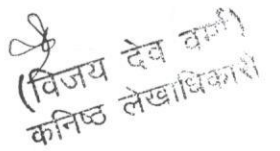 (विजय देव वर्मा)
कनिष्ठ लेखाधिकारी